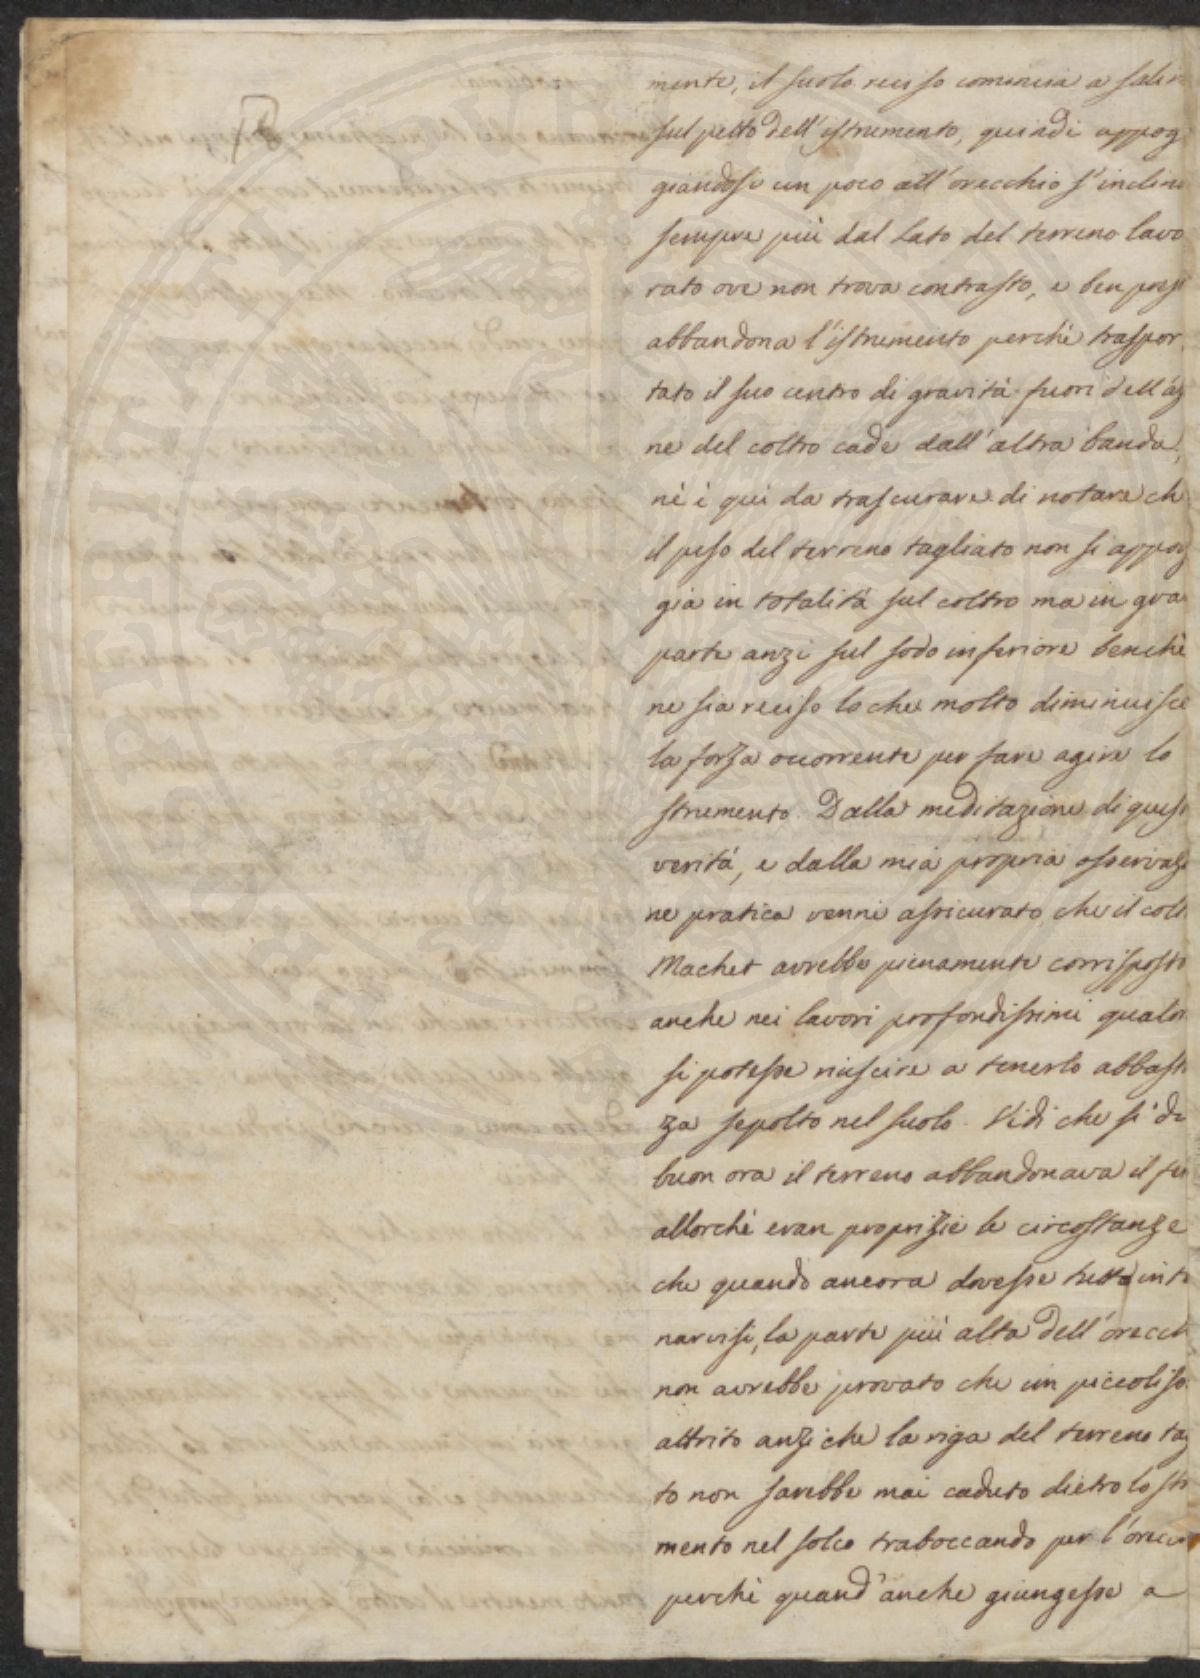 mente, il suolo reciso comincia a salir
sul petto dell'istrumento, quindi appog
giandosi un poco all'orecchio s'inclina
sempre più dal lato del terreno lavo
rato ove non trova contrasto, e ben presto
abbandona l'istrumento perchè traspor
tato il suo centro di gravità fuori dell'az
ne del coltro cade dall'altra banda,
nè è qui da trascurare di notare ch
il peso del terreno tagliato non si appog
gia in totalità sul coltro ma in gra
parte anzi sul sodo inferiore benchè
ne sia reciso loche molto diminuisce
la forza occorrente per fare agire lo
strumento. Dalla meditazione di quest
verità, e dalla mia propria osservazi
ne pratica venni assicurato, che il colt
Machet avrebbe pienamente corrisposto
anche nei lavori profondissimi qualor
si potesse riuscire a tenerlo abbast
za sepolto nel suolo. Vidi che si di
buon ora il terreno abbandonava il fer
allorchè eran proprizie le circostanze
che quando ancora dovesse tutto int
narvisi, la parte più alta dell'orecch
non avrebbe provato che un piccoliss
attrito anziche la riga del terreno tag
to non sarebbe mai caduto dietro lo str
mento nel solco traboccando per l'orecc
perchè quand'anche giungesse a